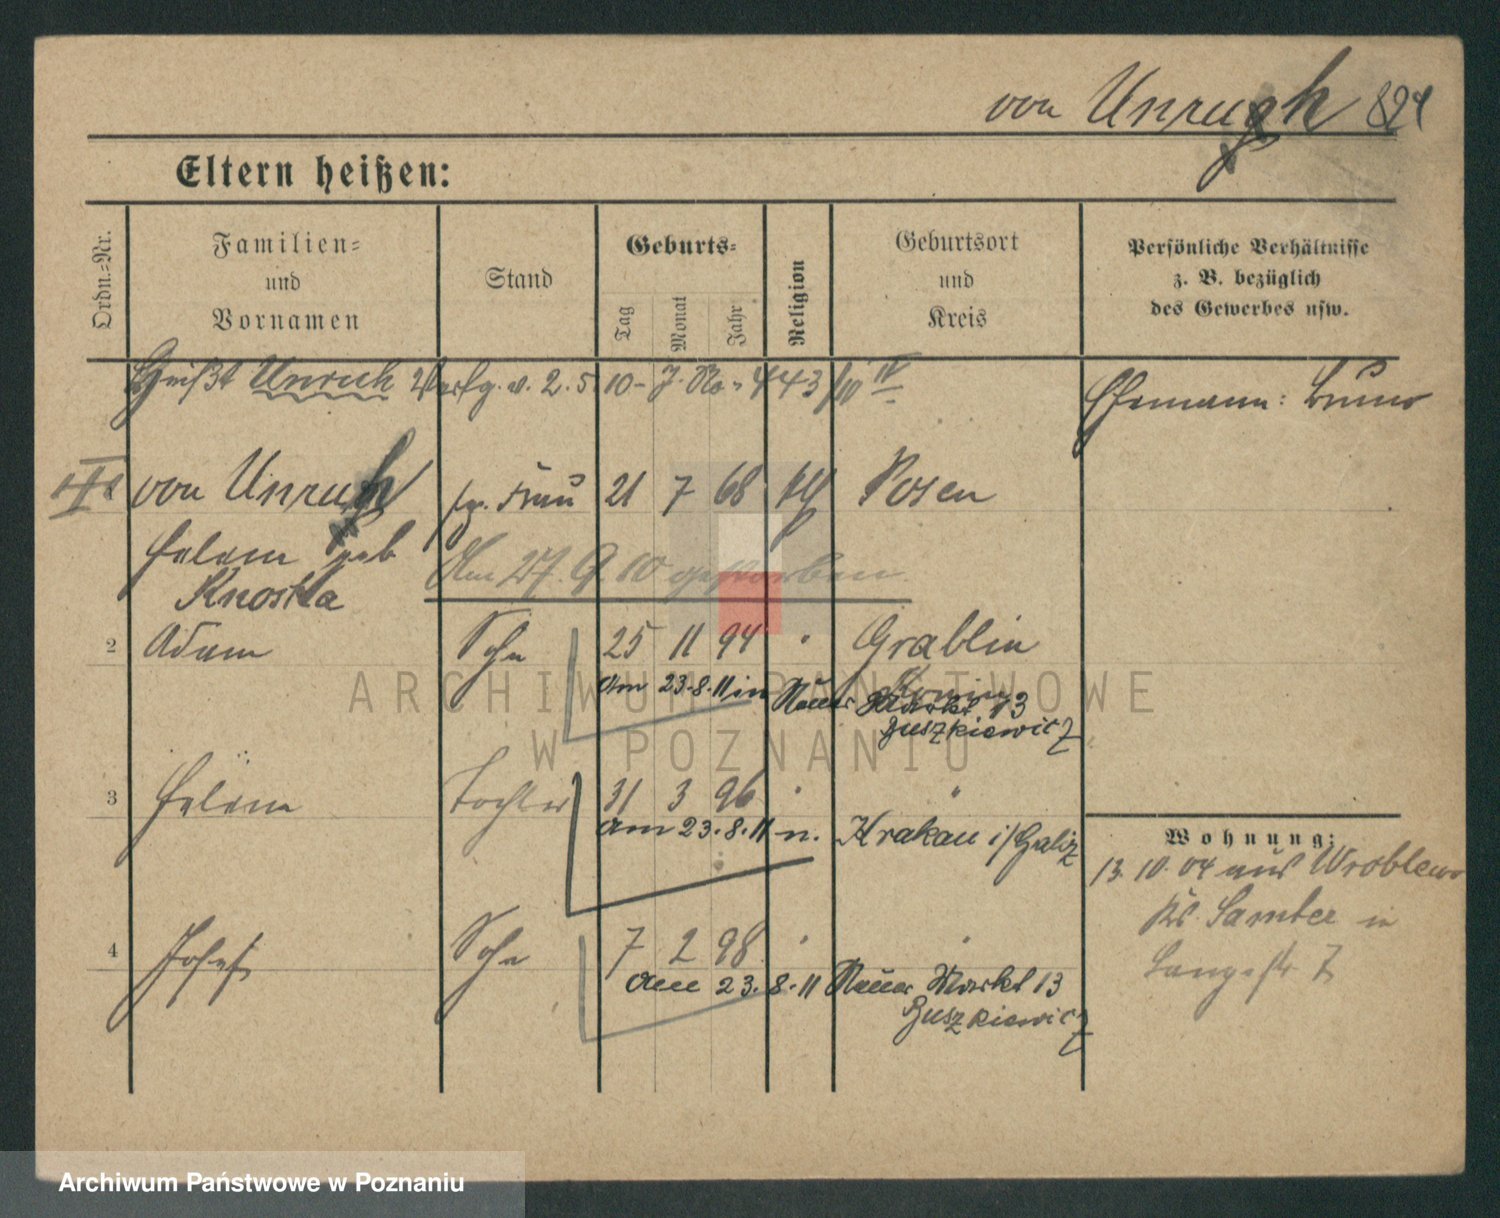 von Unrugh 824
Eltern heißen:
Ordn.=Nr.
Familien=
und
Vornamen
Stand
Geburts=
Tag
Monat
Jahr
Religion
Geburtsort
und
Kreis
Persönliche Verhältnisse
z. B. bezüglich
des Gewerbes usw.
Heißt Unruh Verfg. v. 2. 5. 10 - J. No. 443
Ehemann: Bruno
von Unrugh Frau 21 7 68 Posen
Helene geb
Knoska
Am 27. 9. 10 gestorben.
2 Adam Sohn 25 11 94 " Grablin
Konin
am 23.8.11 in Neuer Markt 13
Ruszkiewicz
3 Helene Tochter 31 3 96 " "
am 23.8.11 n. Krakau i/Galiz
4 Josef Sohn 7 2 98 " "
am 23.8.11 Neuer Markt 13
Ruszkiewicz
Wohnung:
13. 10. 04 aus Wroblewo
Krs. Samter in
Langestr 7
ARCHIWUM PAŃSTWOWE
W POZNANIU
Archiwum Państwowe w Poznaniu